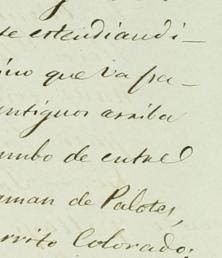 se estendiandi-
ino que va pa-
antiguos arriba
umbo de entre
aman de Palotes,
rrito Colorado;